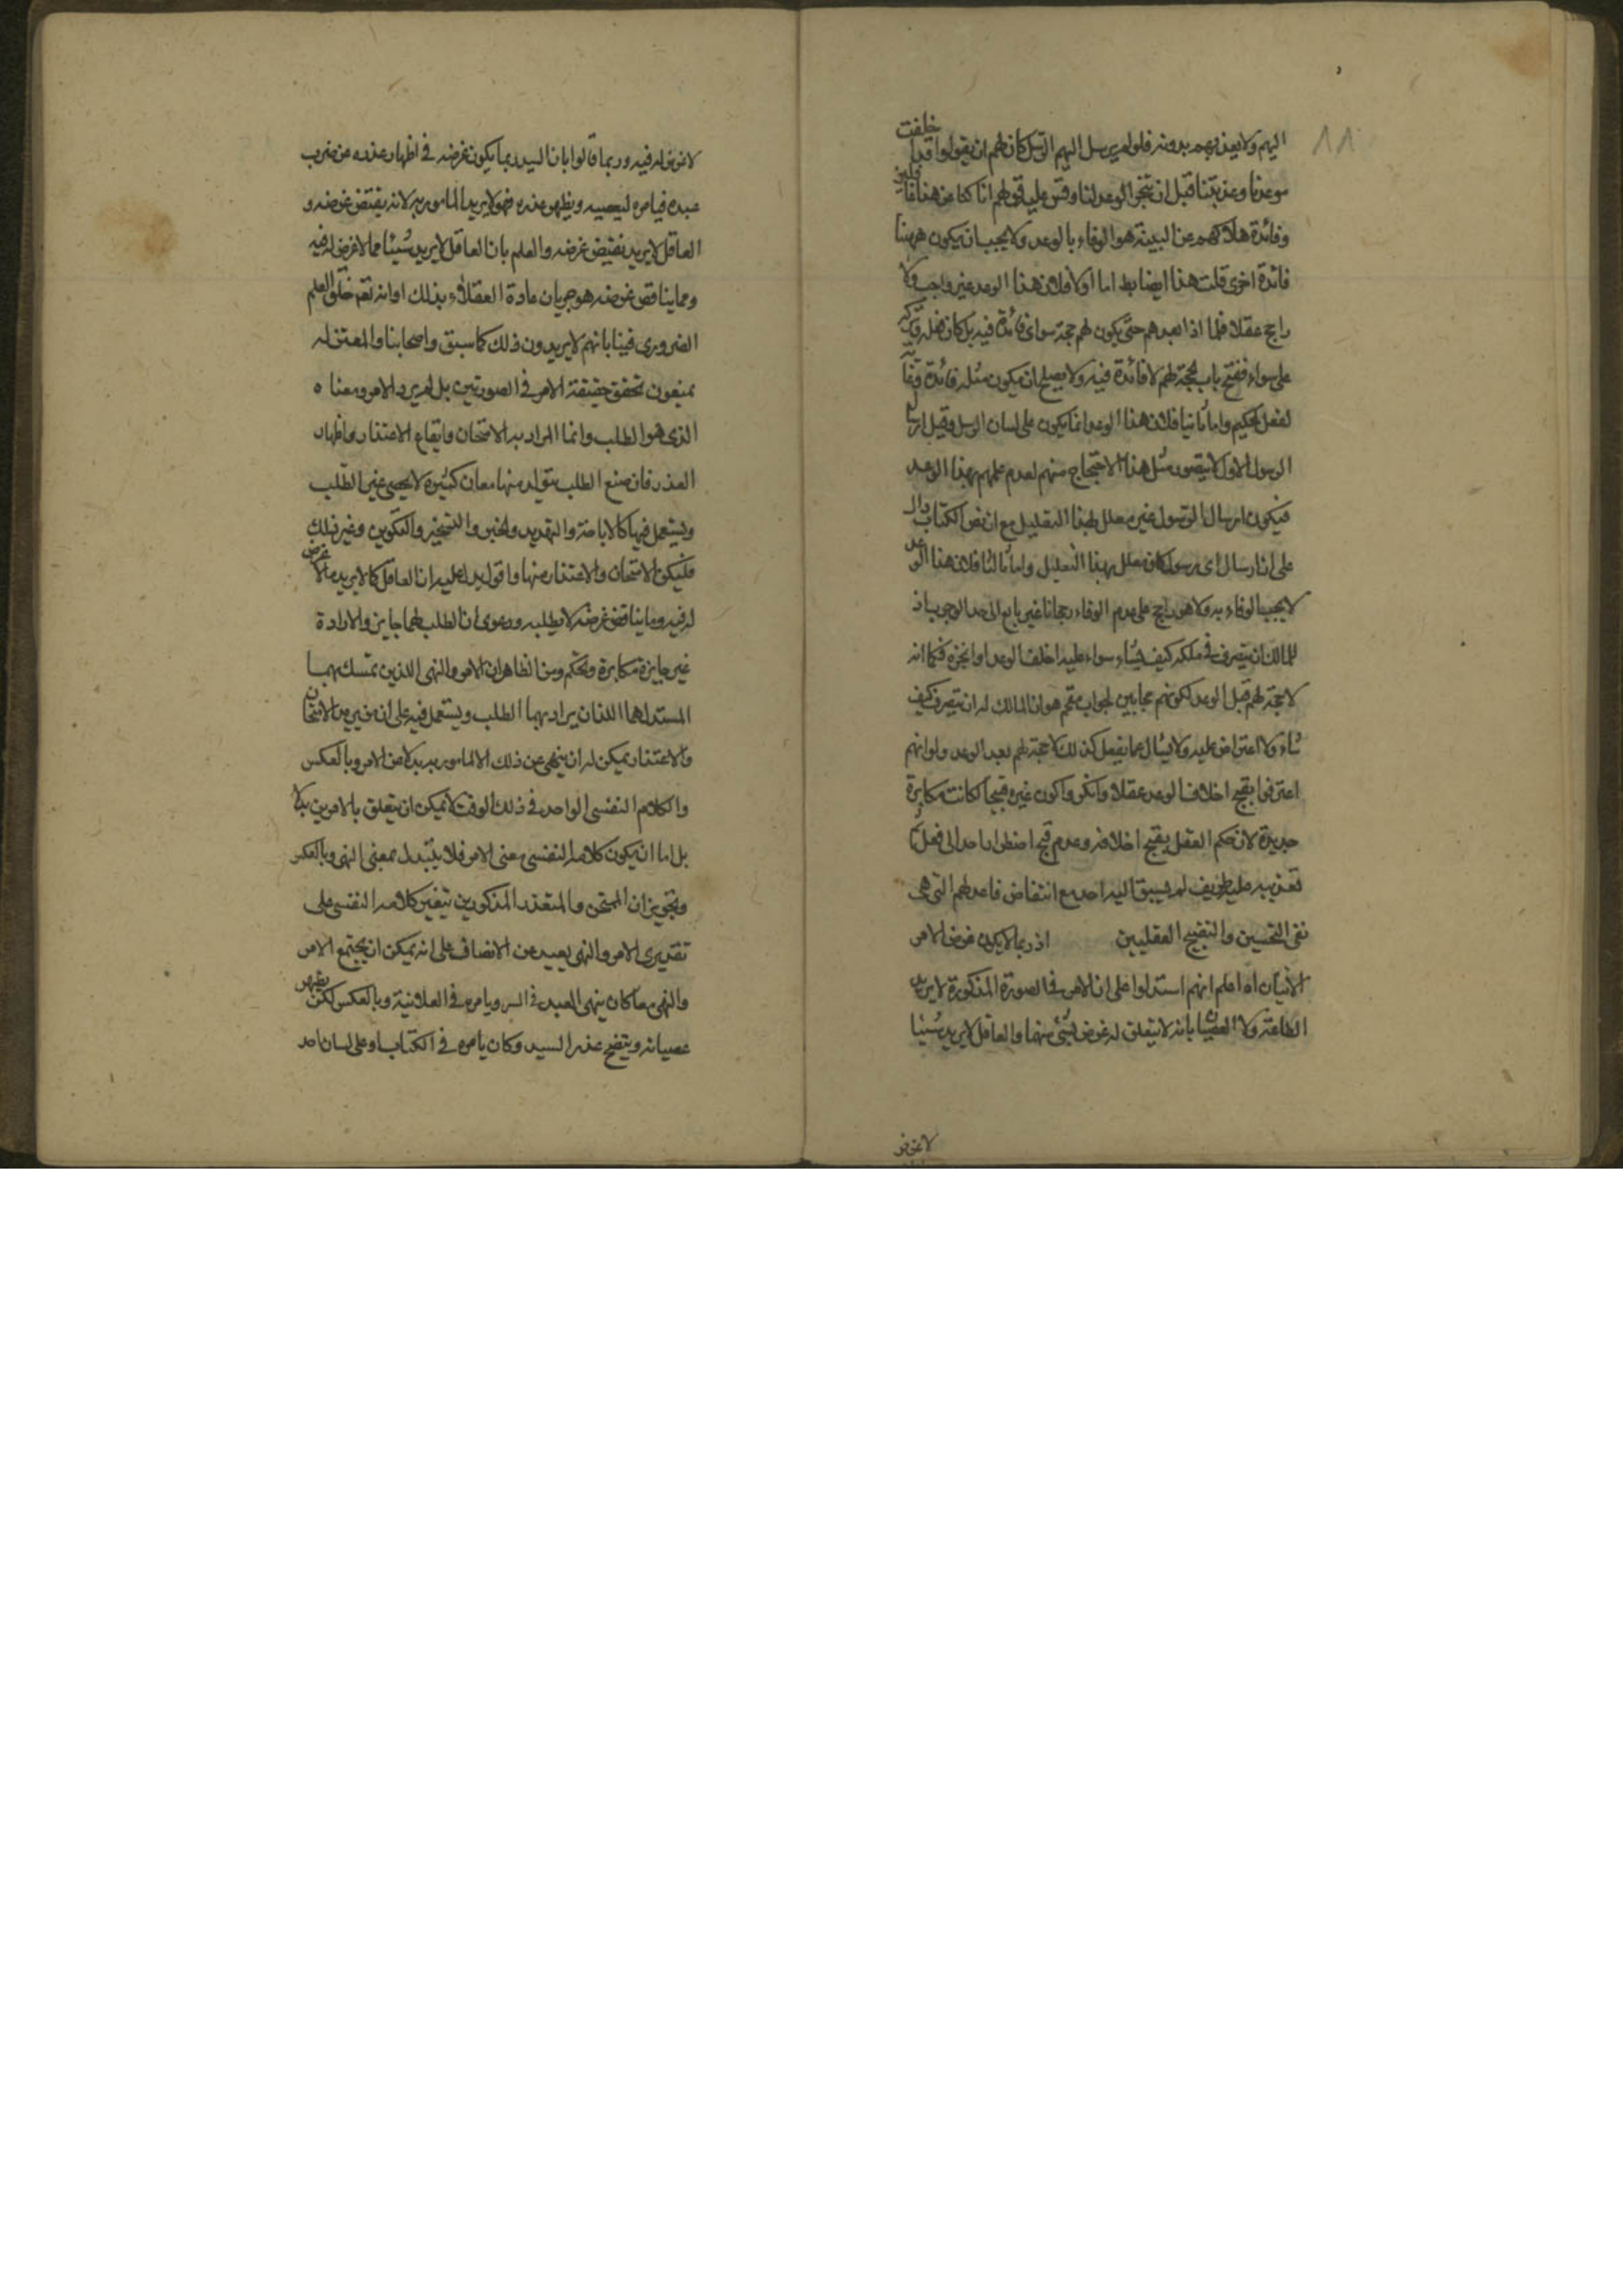 ١١
اليهم ولا يعذبهم بدونه فلو لم يرسل اليهم الرسل كان لهم ان يقولوا قد اخلفت
موعدنا وعذبتنا قبل ان تنجز الوعد لنا وقس عليه قولهم انا كنا عن هذا غافلين
وفائدة هلاكهم عن البينة هو الوفاء بالوعد ولا يجب ان يكون ههنا
فائدة اخرى قلت هذا ايضا بط اما اولا فلان هذا الوعد غير واجب ولا
راجح عقلا فلما اذا بعدهم حتى يكون لهم حجة سواى فائدة فيه بل كان فعله وتركه
على سواء ففتح باب لحجة لهم لا فائدة فيه ولا يصلح ان يكون مثله فائدة وغاية
لفعل الحكيم واما ثانيا فلان هذا الوعد انما يكون على لسان الرسل وقبل ارسال
الرسول الاول لا يتصور مثل هذا الاحتجاج منهم لعدم علمهم بهذا الوعد
فيكون ارسال الرسول غير معلل بهذا التعليل مع ان نص الكتاب دال
على ان ارسال اى رسول كان معلل بهذا التعليل واما ثالثا فلان هذا الوعد
لا يجب الوفاء به ولا هو راجح على عدم الوفاء رجحانا غير بالغ الى حد الوجوب اذ
للمالك ان يتصرف في ملكه كيف يشاء سواء عليه اخلف الوعد او انجزه فكما انه
لا حجة لهم قبل الوعد لكونهم مجابين بجواب مقحم هو ان المالك له ان يتصرف كيف
شاء ولا اعتراض عليه ولا يسأل عما يفعل كذلك لا حجة لهم بعد الوعد ولو انهم
اعترفوا بقبح اخلاف الوعد عقلا وانكروا كون غيره قبيحا لكانت مكابرة
جديدة لان حكم العقل بقبح اخلافه وعدم قبح اضطرار احد الى فعل ثم
تعذيبه عليه طريف لم يسبق اليه احد مع انتقاض قاعدتهم التي هي
نفي التحسين والتقبيح العقليين اذ ربما لا يكون غرض الامر
الاتيان اه اعلم انهم استدلوا على ان الامر في الصورة المذكورة لا يريد
الطاعة ولا العصيان بانه لا يتعلق له غرض بشئ منهما والعاقل لا يريد شيئا
لا غرض
لا غرض له فيه وربما قالوا بان السيد ربما يكون غرضه في اظهار عذره عن ضرب
عبده فيامره ليعصيه ويظهر عذره فهو لا يريد المامور به لانه يقتض غرضه و
العاقل لا يريد نقيض غرضه والعلم بان العاقل لا يريد شيئا مما لا غرض له فيه
ومما يناقض غرضه هو جريان عادة العقلاء بذلك او انه تعم خلق العلم
الضروري فينا بانهم لا يريدون ذلك كما سبق واصحابنا والمعتزله
يمنعون تحقق حقيقة الامر في الصورتين بل لم يرد الامر ومعناه
الذى هو الطلب وانما المراد به الامتحان وايقاع الاعتذار واظهار
العذر فان صيغ الطلب يتولد منها معان كثيرة لا تحصى غير الطلب
ويستعمل فيها كالاباحة والتهديد والخبر والتسخير والتكوين وغير ذلك
فليكن الامتحان والاعتذار منها واقول يدل عليه ان العاقل كما لا يريد مالا غرض
له فيه وما يناقض غرضه لا يطلبه ودعوى ان الطلب لهما جايز والارادة
غير جايزة مكابرة وتحكم ومن الظاهر ان الامر والنهي الذين تمسك بهما
المستدل هما اللذان يراد بهما الطلب ويستعمل فيه على ان من يريد الامتحان
والاعتذار يمكن له ان ينهى عن ذلك الالمامور به بدلا من الامر وبالعكس
والكلام النفسي الواحد في ذلك الوقت لا يمكن ان يتعلق بالامرين بدلا
بل اما ان يكون كلامه النفسي معنى الامر فلا يتبدل بمعنى النهي وبالعكس
وتجويز ان الممتحن والمتعذر المذكورين يتغير كلامه النفسي على
تقديري الامر والنهي بعيد من الانصاف على انه يمكن ان يجتمع الامر
والنهي معا كان ينهى العبد في السر ويامره في العلانية وبالعكس لكن يظهر
عصيانه ويتضح عذر السيد وكان يامره في الكتاب او على لسان احد